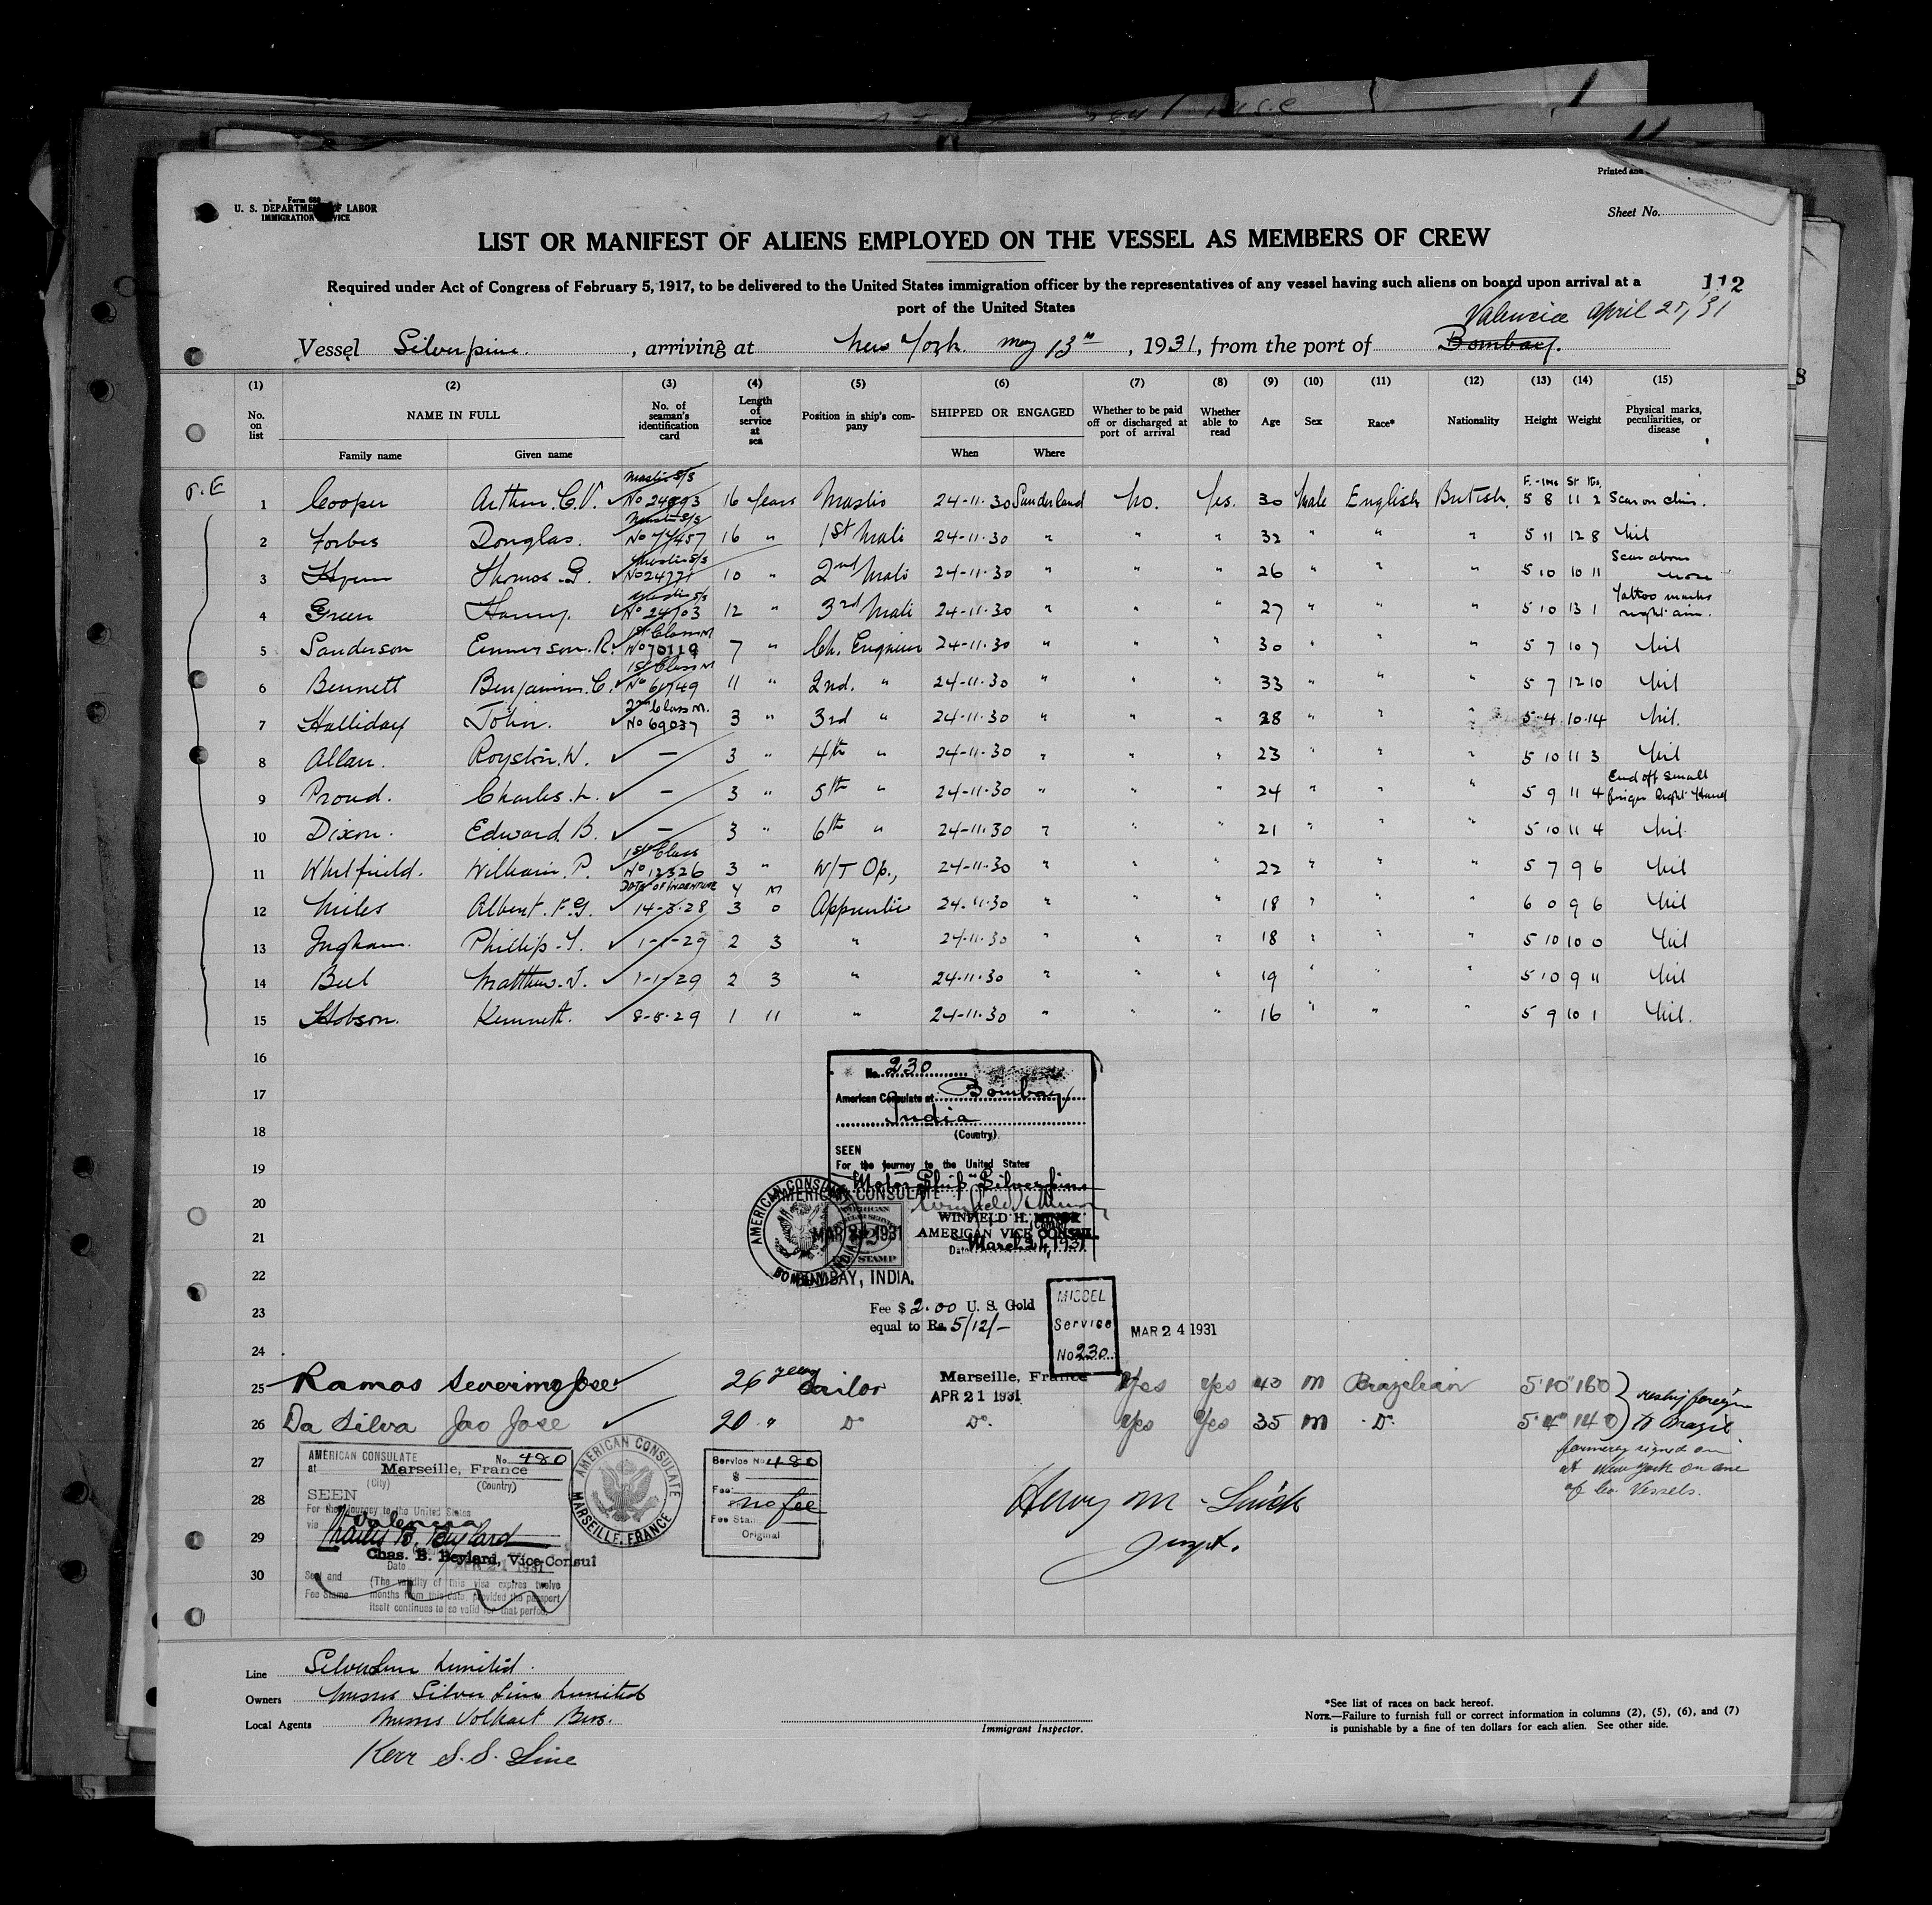 Printed and
Form 680
U. S. DEPARTMENT OF LABOR
IMMIGRATION SERVICE
Sheet No.
LIST OR MANIFEST OF ALIENS EMPLOYED ON THE VESSEL AS MEMBERS OF CREW
Required under Act of Congress of February 5, 1917, to be delivered to the United States immigration officer by the representatives of any vessel having such aliens on board upon arrival at a
port of the United States
112
Valencia April 25/31
Vessel Silverpine, arriving at New York May 13th, 1931, from the port of Bombay.
(1) (2) (3) (4) (5) (6) (7) (8) (9) (10) (11) (12) (13) (14) (15)
No. on list NAME IN FULL No. of seaman's identification card Length of service at sea Position in ship's company SHIPPED OR ENGAGED Whether to be paid off or discharged at port of arrival Whether able to read Age Sex Race* Nationality Height Weight Physical marks, peculiarities, or disease
Family name Given name When Where
1 Cooper Arthur. C.V. No 24893 16 Years Master 24-11-30 Sunderland No. Yes. 30 Male English British. 5 8 11 2 Scar on chin.
2 Forbes Douglas. No 44457 16 " 1st Mate 24-11-30 " " " 32 " " " 5 11 12 8 Nil
3 Thomas. G. No 24771 10 " 2nd Mate 24-11-30 " " " 26 " " " 5 10 10 11 Scar above nose
4 Green Harry. No 24703 12 " 3rd Mate 24-11-30 " " " 27 " " " 5 10 13 1 Tattoo marks right arm.
5 Sanderson Emmerson. R. 1st Class M No 70119 7 " Ch. Engineer 24-11-30 " " " 30 " " " 5 7 10 7 Nil
6 Bennett Benjamin. C. 1st Class M No 61749 11 " 2nd. " 24-11-30 " " " 33 " " " 5 7 12 10 Nil
7 Halliday John. 2nd Class M. No 69037 3 " 3rd " 24-11-30 " " " 28 " " " 5 4 10 14 Nil.
8 Allan. Royston. W. - 3 " 4th " 24-11-30 " " " 23 " " " 5 10 11 3 Nil
9 Proud. Charles. L. - 3 " 5th " 24-11-30 " " " 24 " " " 5 9 11 4 End off small finger Right Hand
10 Dixon. Edward. B. - 3 " 6th " 24-11-30 " " " 21 " " " 5 10 11 4 Nil
11 Whitfield. William. P. 1st Class No 12326 3 " W/T Op., 24-11-30 " " " 22 " " " 5 7 9 6 Nil
DATE OF INDENTURE Y M
12 Miles Albert. F.G. 14-8-28 3 0 Apprentice 24-11-30 " " " 18 " " " 6 0 9 6 Nil
13 Ingham. Phillip. 1-1-29 2 3 " 24-11-30 " " " 18 " " " 5 10 10 0 Nil
14 Bell Matthew. J. 1-1-29 2 3 " 24-11-30 " " " 19 " " " 5 10 9 11 Nil
15 Hobson. Kenneth. 8-5-29 1 11 " 24-11-30 " " " 16 " " " 5 9 10 1 Nil.
16
17
18
19
20
21
22
23
24
No. 230
American Consulate at Bombay
India
(Country)
SEEN
For the journey to the United States
Motor Ship "Silverpine"
AMERICAN CONSULATE
WINFIELD H. MINOR
AMERICAN VICE CONSUL
MAR 24 1931
Date March 24, 1931
STAMP
BOMBAY, INDIA.
Fee $ 2.00 U. S. Gold
equal to Rs. 5/12/-
MISCEL
Service
No 230
MAR 24 1931
25 Ramos Severino Jose 26 years Sailor Marseille, France APR 21 1931 Yes Yes 40 M Brazilian 5'10" 160
26 Da Silva Jao Jose 20 " Do Do. Yes Yes 35 M Do 5'4" 140
reship foreign
to Brazil
formerly signed on
at New York on one
of Co. Vessels.
27
28
29
30
AMERICAN CONSULATE No 480
at Marseille, France
(City) (Country)
SEEN
For the journey to the United States
via Valencia
Charles B. Beylard
Chas. B. Beylard, Vice Consul
Date APR 21 1931
Seal and Fee Stamp
(The validity of this visa expires twelve
months from this date, provided the passport
itself continues to be valid for that period.
AMERICAN CONSULATE
MARSEILLE, FRANCE
Service No 480
Fee: no fee
Fee Stamp
Original
Line Silverline Limited.
Owners Messrs Silver Line Limited
Local Agents Messrs Volkart Bros.
Kerr S.S. Line
Immigrant Inspector.
*See list of races on back hereof.
NOTE.—Failure to furnish full or correct information in columns (2), (5), (6), and (7)
is punishable by a fine of ten dollars for each alien. See other side.